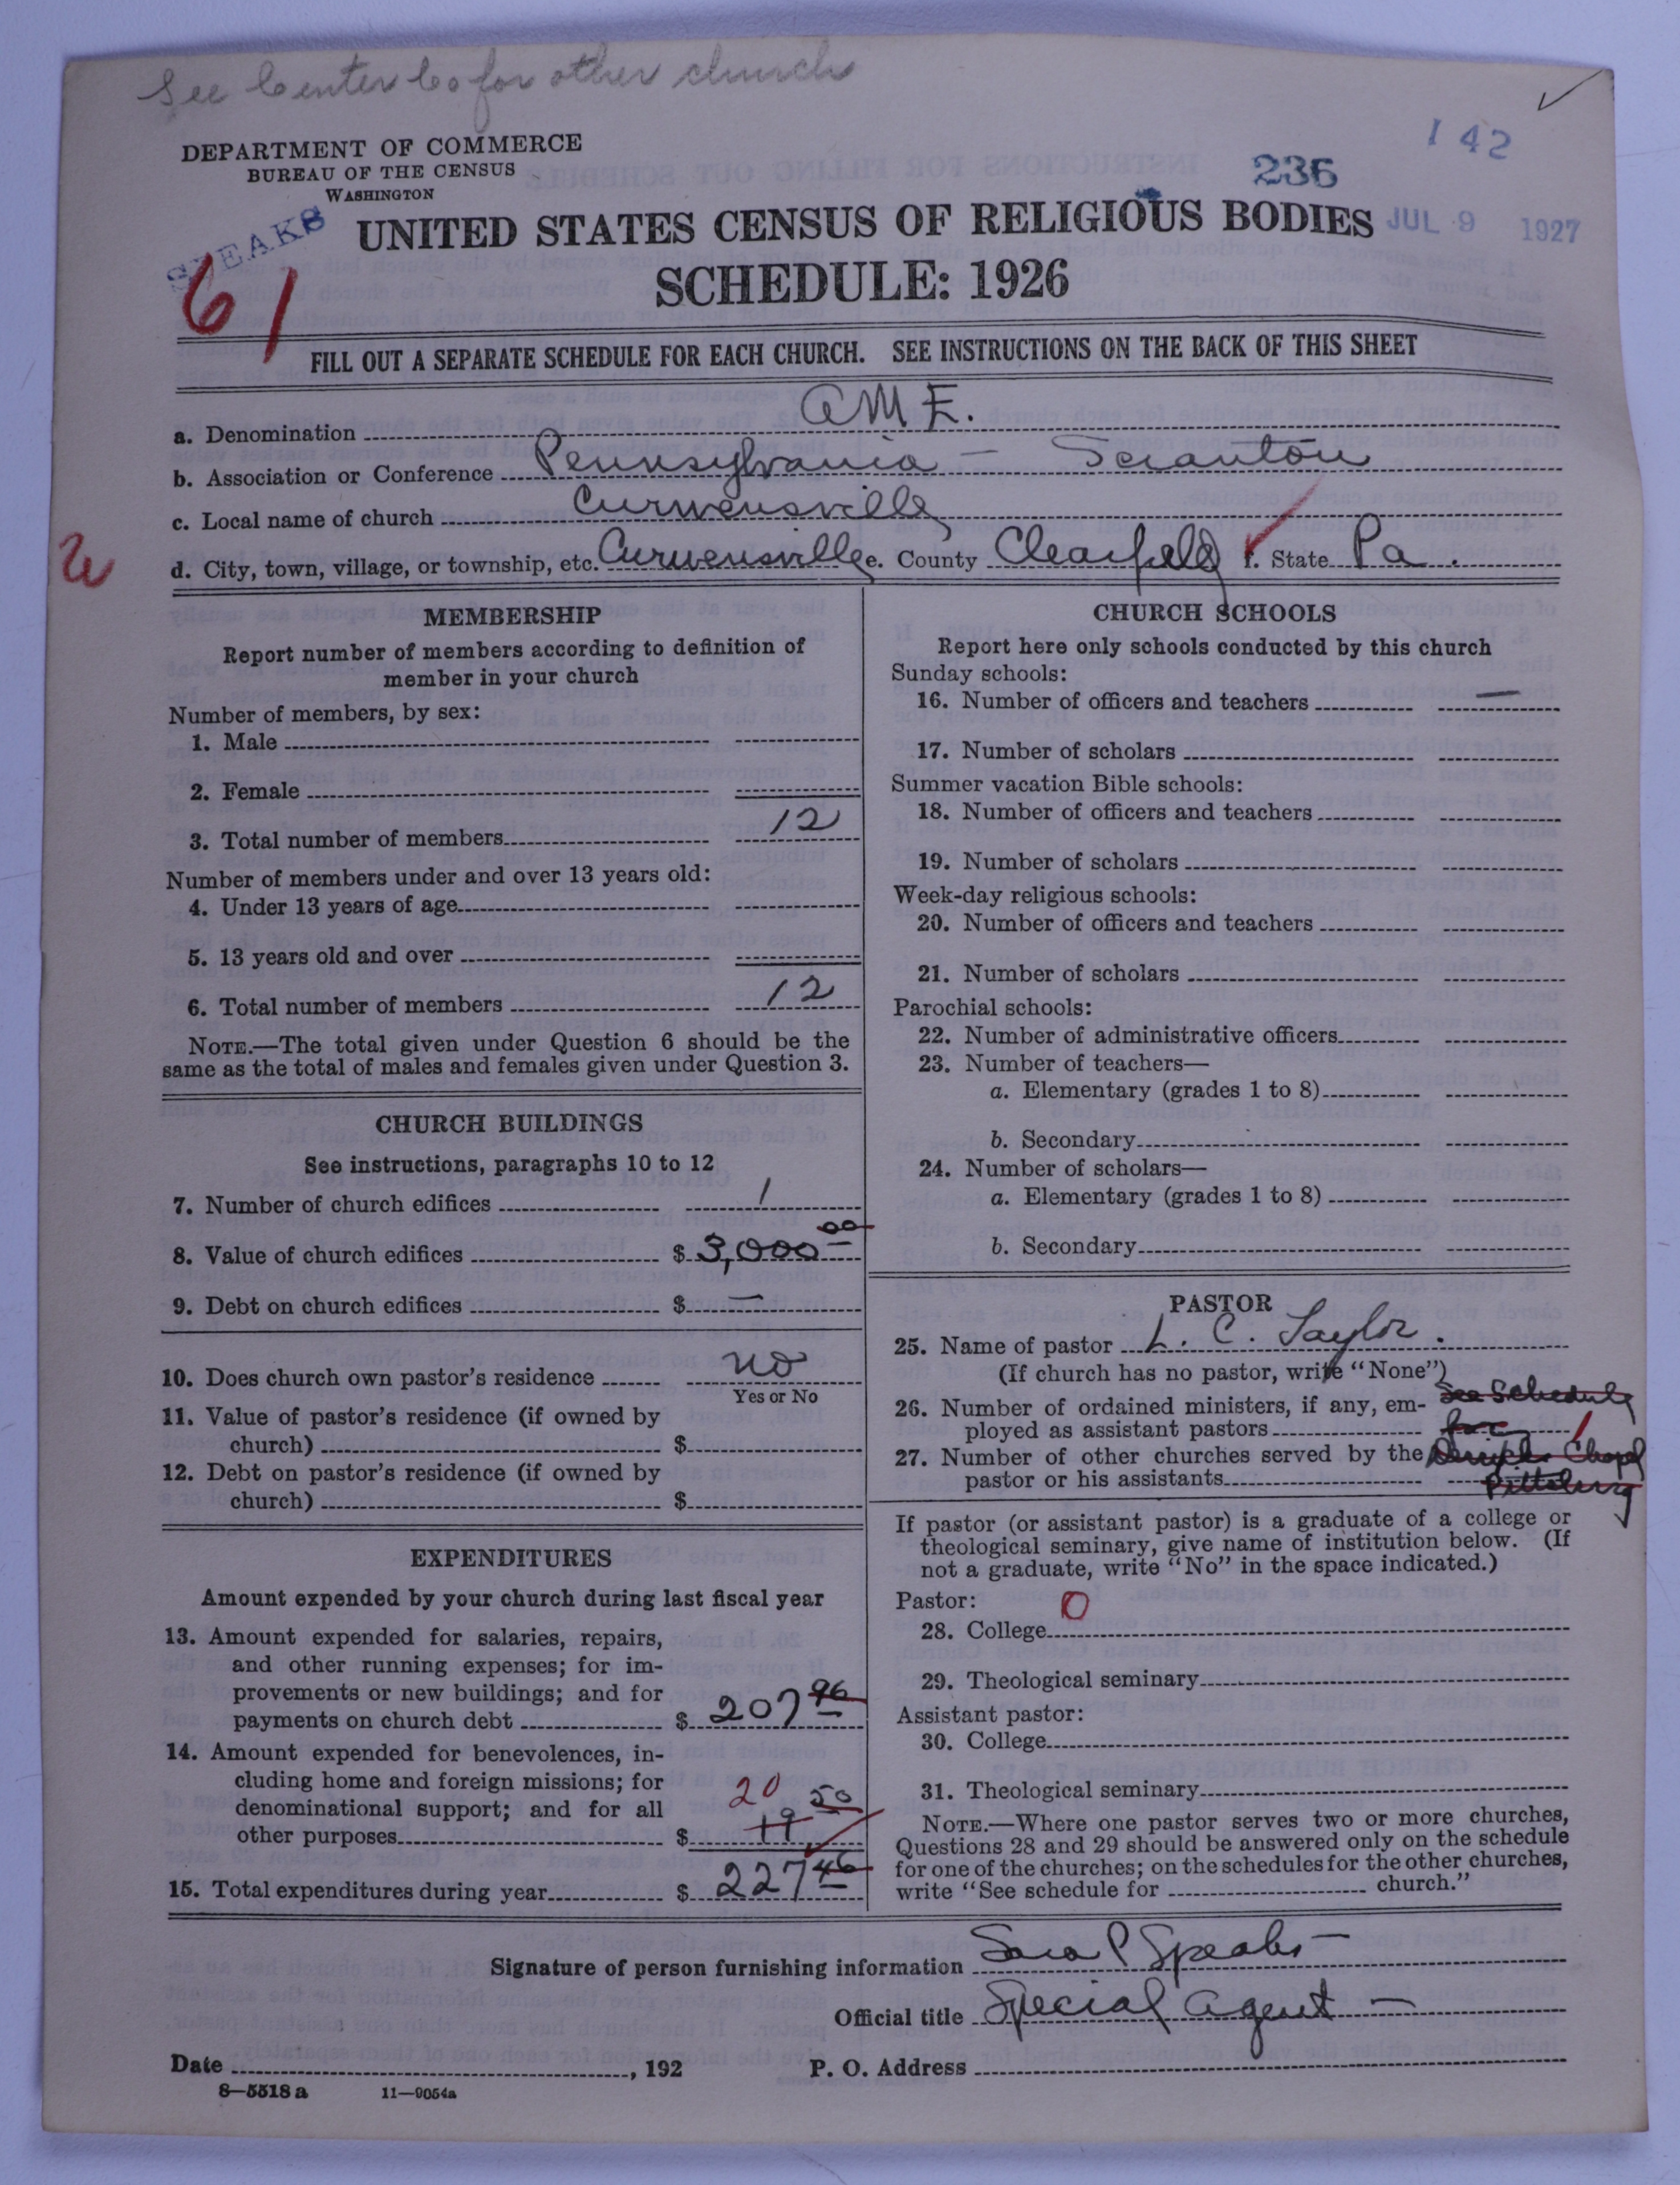 See Center Co for other church
DEPARTMENT OF COMMERCE
BUREAU OF THE CENSUS
WASHINGTON
SPEAKS
236
142
JUL 9 1927
UNITED STATES CENSUS OF RELIGIOUS BODIES
SCHEDULE: 1926
61
FILL OUT A SEPARATE SCHEDULE FOR EACH CHURCH. SEE INSTRUCTIONS ON THE BACK OF THIS SHEET
a. Denomination A M E.
b. Association or Conference Pennsylvania - Scranton
c. Local name of church Curwensville
d. City, town, village, or township, etc. Curwensville e. County Clearfield f. State Pa.
MEMBERSHIP
Report number of members according to definition of
member in your church
Number of members, by sex:
1. Male
2. Female
3. Total number of members 12
Number of members under and over 13 years old:
4. Under 13 years of age
5. 13 years old and over
6. Total number of members 12
NOTE.—The total given under Question 6 should be the
same as the total of males and females given under Question 3.
CHURCH BUILDINGS
See instructions, paragraphs 10 to 12
7. Number of church edifices 1
8. Value of church edifices $ 3,000 00
9. Debt on church edifices $ —
10. Does church own pastor's residence no
Yes or No
11. Value of pastor's residence (if owned by
church) $
12. Debt on pastor's residence (if owned by
church) $
EXPENDITURES
Amount expended by your church during last fiscal year
13. Amount expended for salaries, repairs,
and other running expenses; for im-
provements or new buildings; and for
payments on church debt $ 207 96
14. Amount expended for benevolences, in-
cluding home and foreign missions; for
denominational support; and for all
other purposes $ 20 19 50
15. Total expenditures during year $ 227 46
CHURCH SCHOOLS
Report here only schools conducted by this church
Sunday schools:
16. Number of officers and teachers —
17. Number of scholars
Summer vacation Bible schools:
18. Number of officers and teachers
19. Number of scholars
Week-day religious schools:
20. Number of officers and teachers
21. Number of scholars
Parochial schools:
22. Number of administrative officers
23. Number of teachers—
a. Elementary (grades 1 to 8)
b. Secondary
24. Number of scholars—
a. Elementary (grades 1 to 8)
b. Secondary
PASTOR
25. Name of pastor L. C. Taylor.
(If church has no pastor, write "None")
26. Number of ordained ministers, if any, em- See Schedule
ployed as assistant pastors for 1
27. Number of other churches served by the Chapel
pastor or his assistants Pittsburg
If pastor (or assistant pastor) is a graduate of a college or
theological seminary, give name of institution below. (If
not a graduate, write "No" in the space indicated.)
Pastor: 0
28. College
29. Theological seminary
Assistant pastor:
30. College
31. Theological seminary
NOTE.—Where one pastor serves two or more churches,
Questions 28 and 29 should be answered only on the schedule
for one of the churches; on the schedules for the other churches,
write "See schedule for church."
Signature of person furnishing information Sara P Speaks
Official title Special Agent
Date , 192 P. O. Address
8—5518 a 11—9054a